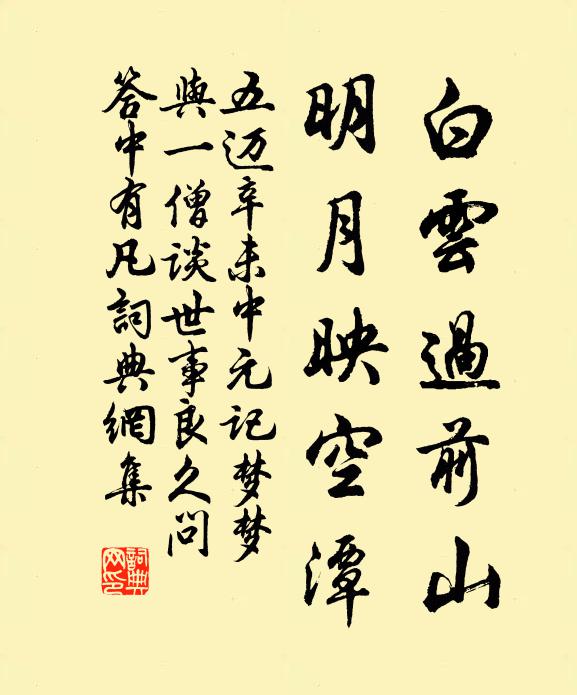 白雲過前山
明月映空潭
五迈辛未中元记梦梦
與一僧談世事良久问
答中有凡詞典網集
詞典网印